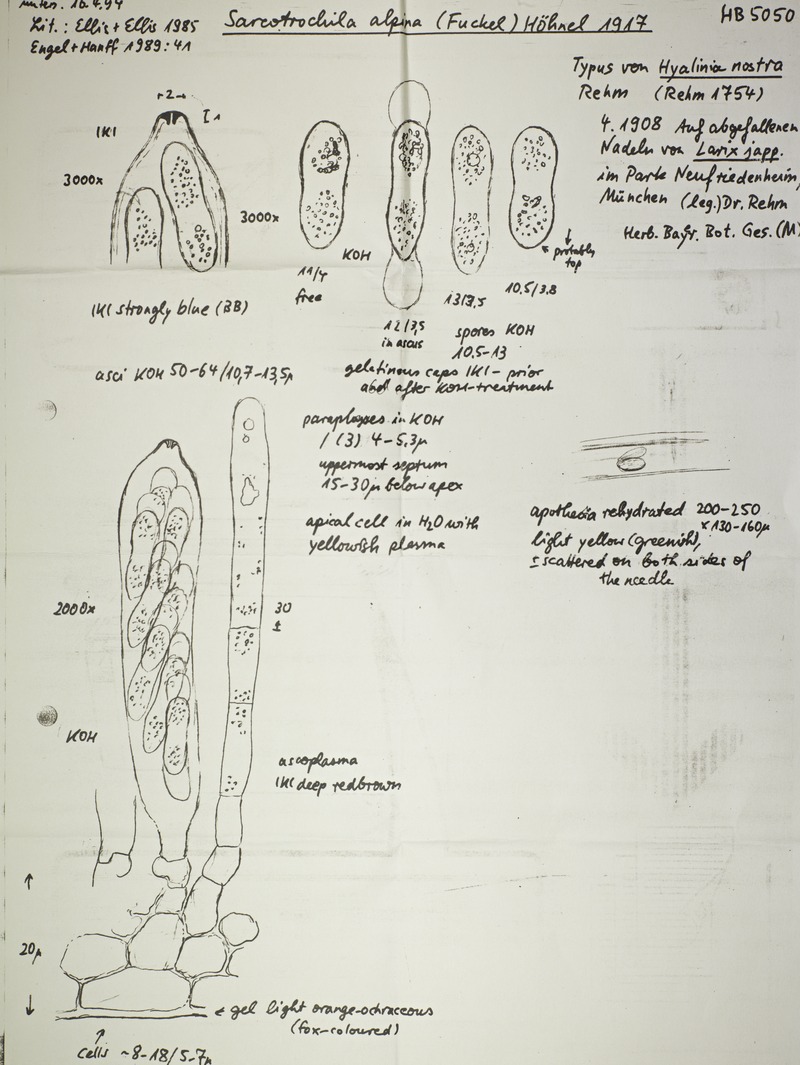 unters. 16.4.94
Lit.: Ellis + Ellis 1985
Engel + Hanff 1989: 41
Sarcotrochila alpina (Fuckel) Höhnel 1917
HB 5050
Typus von Hyalinia nostra
Rehm (Rehm 1754)
4.1908 Auf abgefallenen
Nadeln von Larix japp.
im Parke Neufriedenheim,
München (leg.) Dr. Rehm
Herb. Bayr. Bot. Ges. (M)
2
1
IKI
3000x
3000x
IKI strongly blue (BB)
KOH
11/4
free
12/3,5
in ascus
13/3,5
10,5/3,8
probably
top
spores KOH
10.5-13
gelatinous caps IKI- prior
and after KOH-treatment
asci KOH 50-64/10,7-13,5µ
paraphyses in KOH
/ (3) 4-5,3µ
uppermost septum
15-30µ below apex
apical cell in H2O with
yellowish plasma
apothecia rehydrated 200-250
x 130-160µ
light yellow (greenish),
± scattered on both sides of
the needle
2000x
30
±
KOH
ascoplasma
IKI deep redbrown
20µ
gel light orange-ochraceous
(fox-coloured)
cells ~8-18/5-7µ